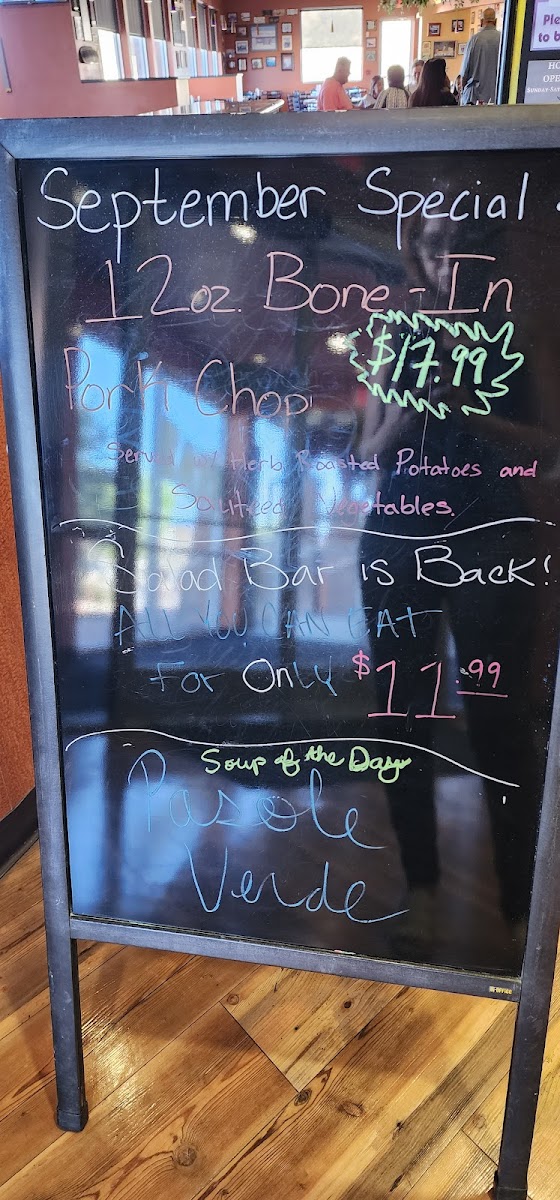 Ple
to b
HO
OPE
SUNDAY-SAT
September Special
12oz. Bone-In
$17.99
Pork Chop
Served w/ Herb Roasted Potatoes and
Sauteed Vegetables.
Salad Bar is Back!
ALL YOU CAN EAT
For Only $11.99
Soup of the Day
Pasole
Verde